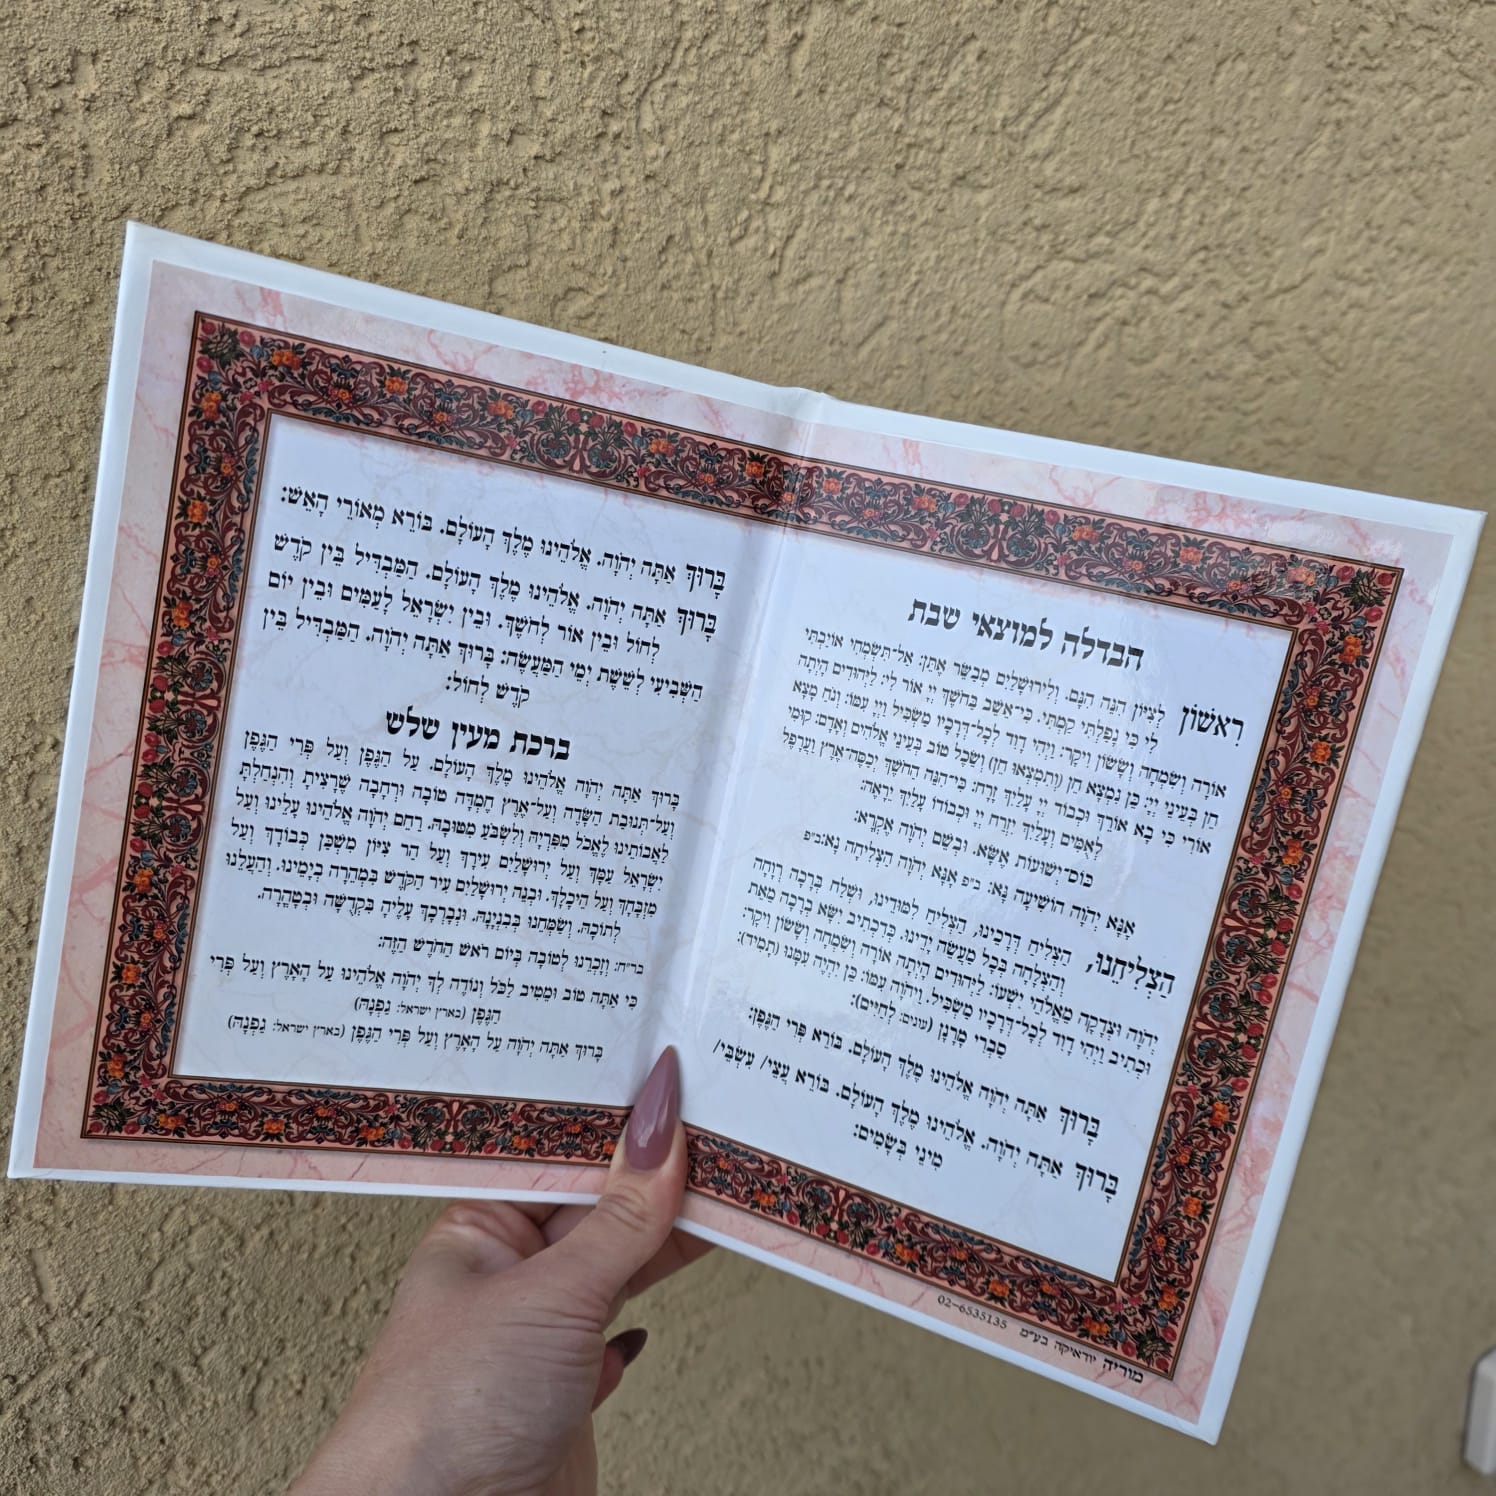 הבדלה למוצאי שבת
רִאשׁוֹן לְצִיּוֹן הִנֵּה הִנָּם. וְלִירוּשָׁלַיִם מְבַשֵּׂר אֶתֵּן: אַל־תִּשְׂמְחִי אוֹיַבְתִּי
לִי כִּי נָפַלְתִּי קַמְתִּי. כִּי־אֵשֵׁב בַּחֹשֶׁךְ יְיָ אוֹר לִי: לַיְּהוּדִים הָיְתָה
אוֹרָה וְשִׂמְחָה וְשָׂשׂוֹן וִיקָר: וַיְהִי דָוִד לְכָל־דְּרָכָיו מַשְׂכִּיל וַיְיָ עִמּוֹ: וְנֹחַ מָצָא
חֵן בְּעֵינֵי יְיָ: כֵּן נִמְצָא חֵן (וְתִמְצְאוּ חֵן) וְשֵׂכֶל טוֹב בְּעֵינֵי אֱלֹהִים וְאָדָם: קוּמִי
אוֹרִי כִּי בָא אוֹרֵךְ וּכְבוֹד יְיָ עָלַיִךְ זָרָח: כִּי־הִנֵּה הַחֹשֶׁךְ יְכַסֶּה־אֶרֶץ וַעֲרָפֶל
לְאֻמִּים וְעָלַיִךְ יִזְרַח יְיָ וּכְבוֹדוֹ עָלַיִךְ יֵרָאֶה:
כּוֹס־יְשׁוּעוֹת אֶשָּׂא. וּבְשֵׁם יְהֹוָה אֶקְרָא:
אָנָּא יְהֹוָה הוֹשִׁיעָה נָּא: ב״פ אָנָּא יְהֹוָה הַצְלִיחָה נָּא:ב״פ
הַצְלִיחֵנוּ, הַצְלִיחַ דְּרָכֵינוּ, הַצְלִיחַ לִמּוּדֵינוּ, וּשְׁלַח בְּרָכָה רְוָחָה
וְהַצְלָחָה בְּכָל מַעֲשֵׂה יָדֵינוּ. כְּדִכְתִיב יִשָּׂא בְרָכָה מֵאֵת
יְהֹוָה וּצְדָקָה מֵאֱלֹהֵי יִשְׁעוֹ: לַיְּהוּדִים הָיְתָה אוֹרָה וְשִׂמְחָה וְשָׂשׂוֹן וִיקָר:
וּכְתִיב וַיְהִי דָוִד לְכָל־דְּרָכָיו מַשְׂכִּיל. וַיהֹוָה עִמּוֹ: כֵּן יִהְיֶה עִמָּנוּ (תָּמִיד):
סַבְרִי מָרָנָן (עונים: לְחַיִּים):
בָּרוּךְ אַתָּה יְהֹוָה אֱלֹהֵינוּ מֶלֶךְ הָעוֹלָם. בּוֹרֵא פְּרִי הַגֶּפֶן:
בָּרוּךְ אַתָּה יְהֹוָה. אֱלֹהֵינוּ מֶלֶךְ הָעוֹלָם. בּוֹרֵא עֲצֵי/ עִשְׂבֵּי/
מִינֵי בְשָׂמִים:
מוריה יודאיקה בע״מ 02-6535135
בָּרוּךְ אַתָּה יְהֹוָה. אֱלֹהֵינוּ מֶלֶךְ הָעוֹלָם. בּוֹרֵא מְאוֹרֵי הָאֵשׁ:
בָּרוּךְ אַתָּה יְהֹוָה. אֱלֹהֵינוּ מֶלֶךְ הָעוֹלָם. הַמַּבְדִּיל בֵּין קֹדֶשׁ
לְחוֹל וּבֵין אוֹר לְחֹשֶׁךְ. וּבֵין יִשְׂרָאֵל לָעַמִּים וּבֵין יוֹם
הַשְּׁבִיעִי לְשֵׁשֶׁת יְמֵי הַמַּעֲשֶׂה: בָּרוּךְ אַתָּה יְהֹוָה. הַמַּבְדִּיל בֵּין
קֹדֶשׁ לְחוֹל:
ברכת מעין שלש
בָּרוּךְ אַתָּה יְהֹוָה אֱלֹהֵינוּ מֶלֶךְ הָעוֹלָם. עַל הַגֶּפֶן וְעַל פְּרִי הַגֶּפֶן
וְעַל־תְּנוּבַת הַשָּׂדֶה וְעַל־אֶרֶץ חֶמְדָּה טוֹבָה וּרְחָבָה שֶׁרָצִיתָ וְהִנְחַלְתָּ
לַאֲבוֹתֵינוּ לֶאֱכֹל מִפִּרְיָהּ וְלִשְׂבֹּעַ מִטּוּבָהּ. רַחֵם יְהֹוָה אֱלֹהֵינוּ עָלֵינוּ וְעַל
יִשְׂרָאֵל עַמָּךְ וְעַל יְרוּשָׁלַיִם עִירָךְ וְעַל הַר צִיּוֹן מִשְׁכַּן כְּבוֹדָךְ וְעַל
מִזְבָּחָךְ וְעַל הֵיכָלָךְ. וּבְנֵה יְרוּשָׁלַיִם עִיר הַקֹּדֶשׁ בִּמְהֵרָה בְיָמֵינוּ. וְהַעֲלֵנוּ
לְתוֹכָהּ. וְשַׂמְּחֵנוּ בְּבִנְיָנָהּ. וּנְבָרֶכְךָ עָלֶיהָ בִּקְדֻשָּׁה וּבְטָהֳרָה.
בר״ח: וְזָכְרֵנוּ לְטוֹבָה בְּיוֹם רֹאשׁ הַחֹדֶשׁ הַזֶּה:
כִּי אַתָּה טוֹב וּמֵטִיב לַכֹּל וְנוֹדֶה לְךָ יְהֹוָה אֱלֹהֵינוּ עַל הָאָרֶץ וְעַל פְּרִי
הַגֶּפֶן (בארץ ישראל: גַפְנָהּ)
בָּרוּךְ אַתָּה יְהֹוָה עַל הָאָרֶץ וְעַל פְּרִי הַגֶּפֶן (בארץ ישראל: גַפְנָהּ)